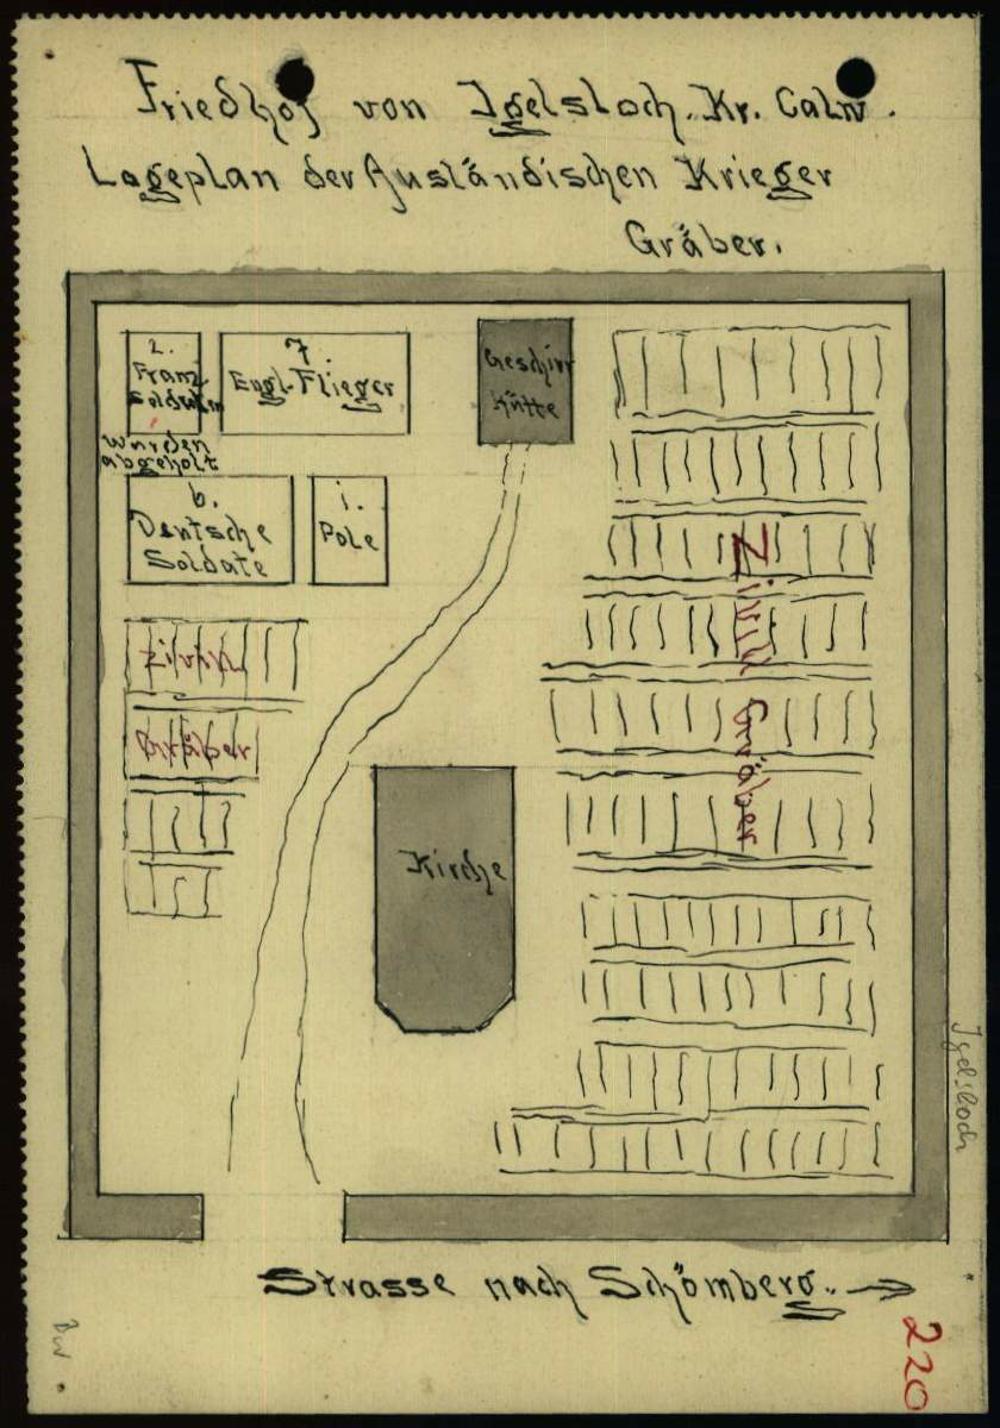 Friedhof von Igelsloch. Kr. Calw.
Lageplan der Ausländischen Krieger
Gräber.
2.
Franz.
Soldaten
wurden
abgeholt
7
Engl. Flieger
Geschirr
Hütte
6.
Deutsche
Soldate
1.
Pole
Zivil
Gräber
Zivil Gräber
Kirche
Igelsloch
Strasse nach Schömberg. →
220